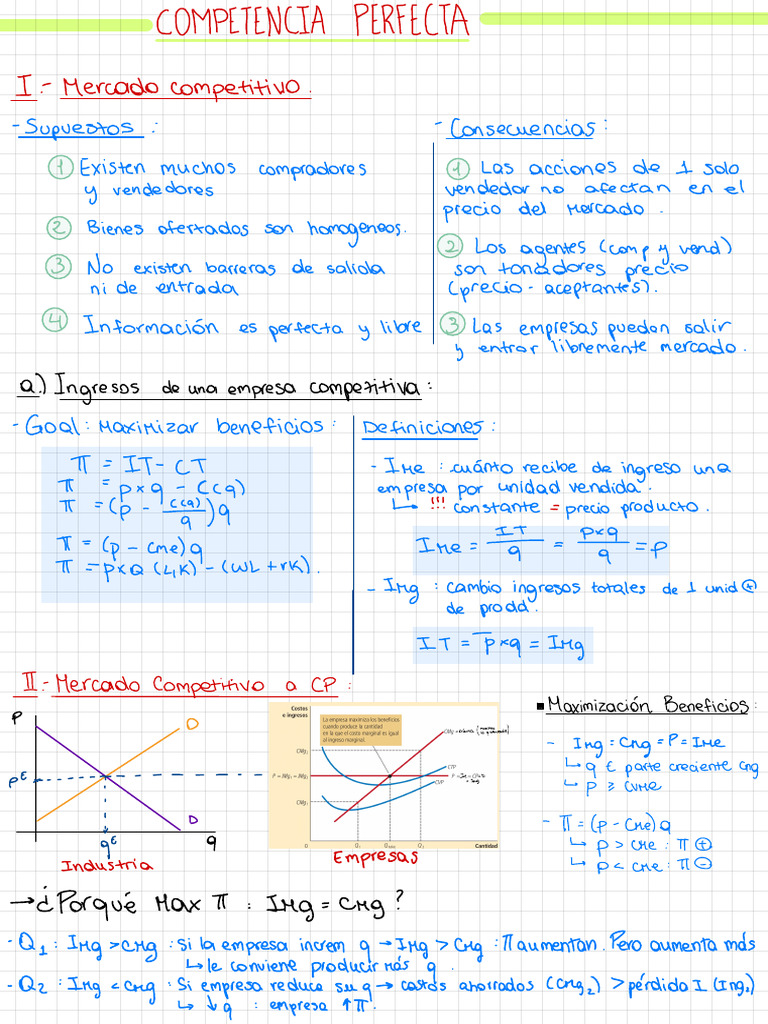 COMPETENCIA PERFECTA
I.- Mercado competitivo.
- Supuestos :
① Existen muchos compradores
y vendedores
② Bienes ofertados son homogeneos.
③ No existen barreras de salida
ni de entrada
④ Información es perfecta y libre
- Consecuencias :
① Las acciones de 1 solo
vendedor no afectan en el
precio del mercado.
② Los agentes (comp y vend)
son tomadores precio
(precio-aceptantes).
③ Las empresas pueden salir
y entrar libremente mercado.
a.) Ingresos de una empresa competitiva :
- Goal : Maximizar beneficios :
π = IT - CT
π = p×q - C(q)
π = (p - C(q)/q) q
π = (p - Cme) q
π = p×Q (L,K) - (wL + rK).
Definiciones :
- IMe : cuánto recibe de ingreso una
empresa por unidad vendida.
↳ !!! constante = precio producto.
IMe = IT/q = p×q/q = p
- IMg : cambio ingresos totales de 1 unid ⊕
de prodd.
IT = p̅×q = IMg
II.- Mercado Competitivo a CP :
P
O
pᴱ
D
qᴱ
q
Industria
Costes
e ingresos
La empresa maximiza los beneficios
cuando produce la cantidad
en la que el coste marginal es igual
al ingreso marginal.
CMg₂
P = IMg₁ = IMg₂
CMg₁
CTP
CVP
0
Q₁
Q₂
Cantidad
Empresas
▪ Maximización Beneficios :
- IMg = CMg = P = IMe
↳ q ∈ parte creciente CMg
↳ P ≥ CVMe
- π = (p - CMe) q
↳ p > CMe : π ⊕
↳ p < CMe : π ⊖
→ ¿Porqué Max π : IMg = CMg ?
- Q₁ : IMg > CMg : Si la empresa increm q → IMg > CMg : π aumentan. Pero aumenta más
↳ le conviene producir más q.
- Q₂ : IMg < CMg : Si empresa reduce su q → costos ahorrados (CMg₂) > pérdida I (IMg₂)
↳ ↓q : empresa ↑π.